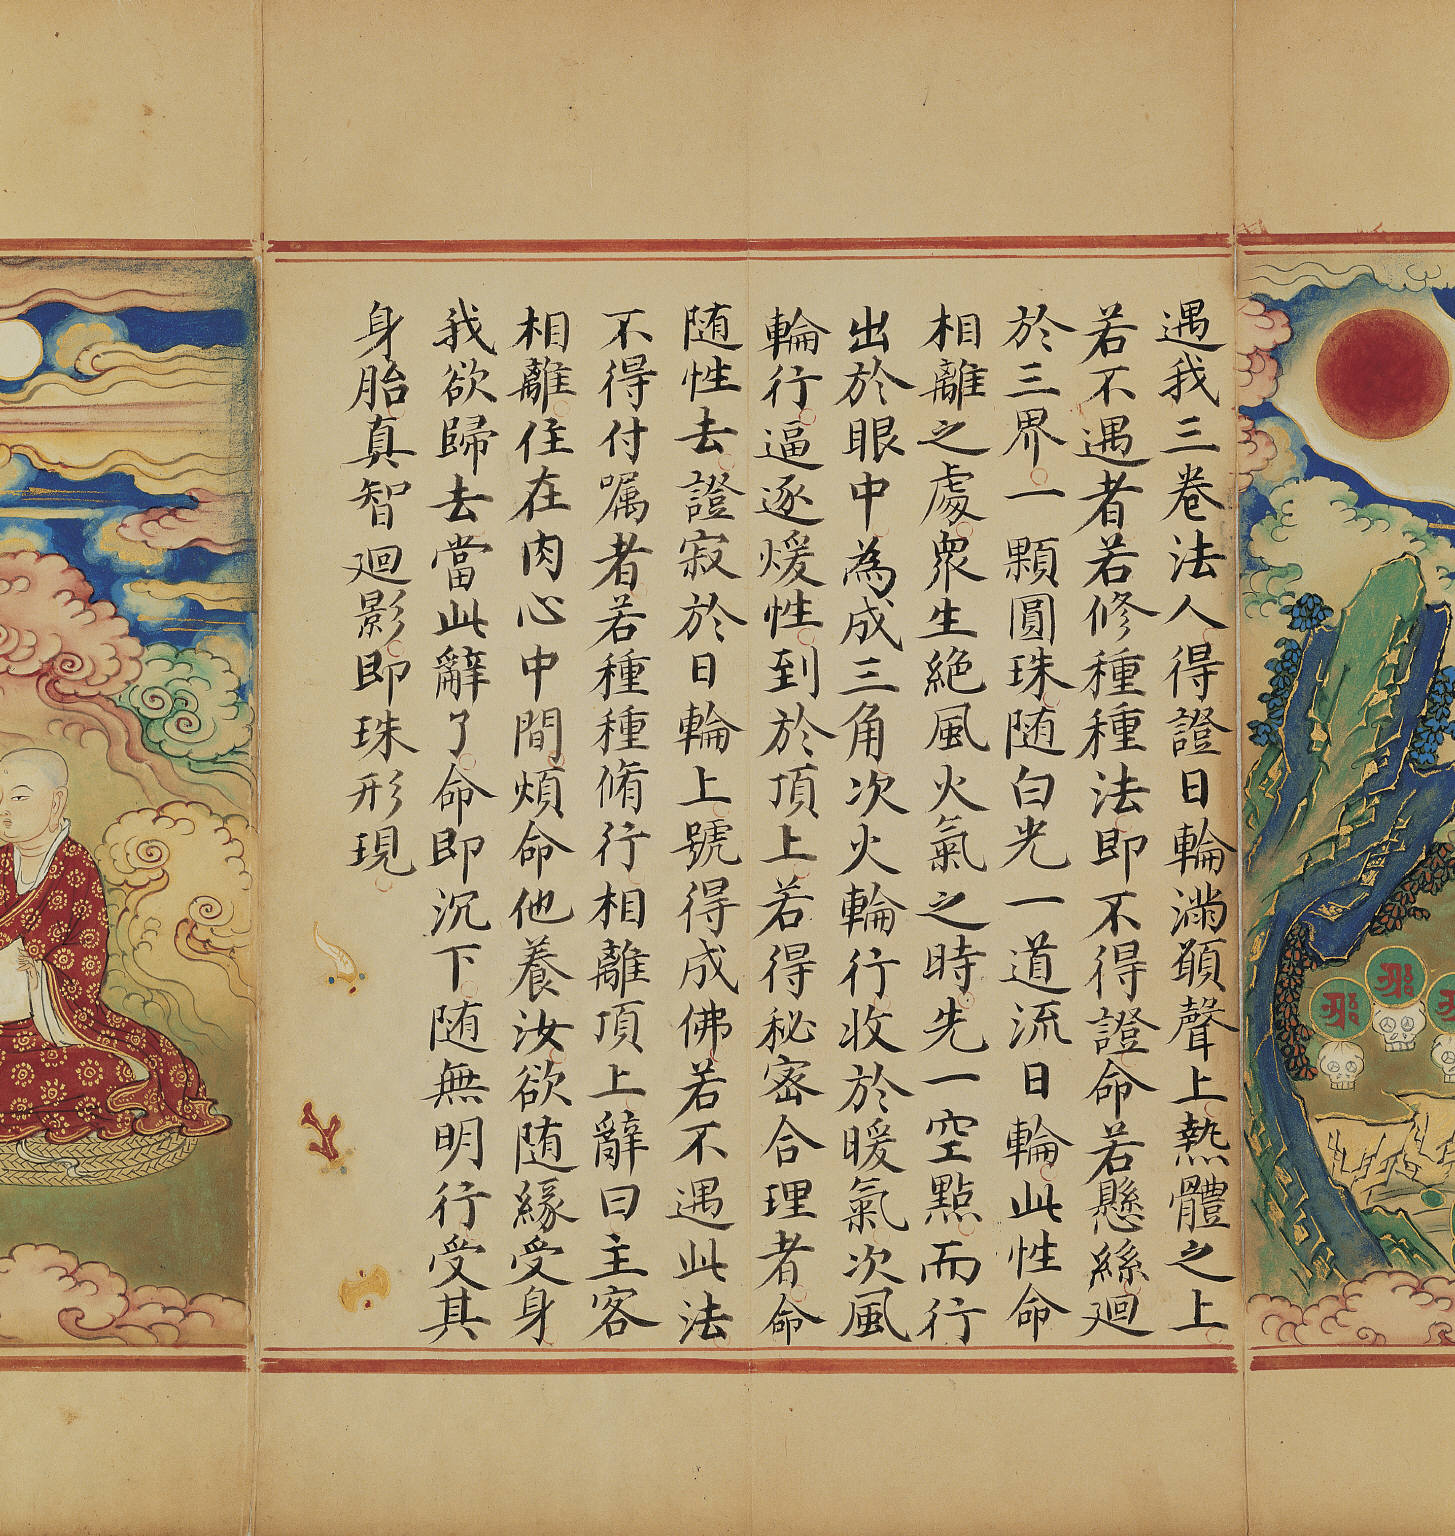 遇我三卷法人得證日輪滿願聲上熱體之上
若不遇者若修種種法即不得證命若懸絲廻
於三界一顆圓珠随白光一道流日輪此性命
相離之處衆生絕風火氣之時先一空點而行
出於眼中為成三角次火輪行收於暖氣次風
輪行逼逐煖性到於頂上若得秘密合理者命
随性去證寂於日輪上號得成佛若不遇此法
不得付嘱者若種種脩行相離頂上辭曰主客
相離住在肉心中間煩命他養汝欲随緣受身
我欲歸去當此辭了命即沉下随無明行受其
身胎真智廻影即珠形現